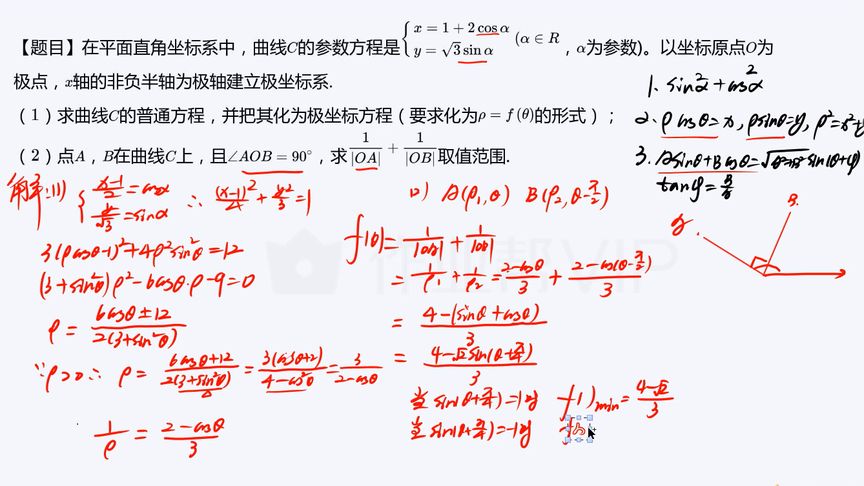 【题目】在平面直角坐标系中，曲线C的参数方程是{x=1+2cosα y=√3sinα (α∈R，α为参数)。以坐标原点O为
极点，x轴的非负半轴为极轴建立极坐标系.
（1）求曲线C的普通方程，并把其化为极坐标方程（要求化为ρ=f(θ)的形式）；
（2）点A，B在曲线C上，且∠AOB=90°，求1/|OA|+1/|OB|取值范围.
1. sin²α+cos²α
2. ρcosθ=x, ρsinθ=y, ρ²=x²+y
3. Asinθ+Bcosθ=
tanφ=B/A
解:(1) {(x-1)/2=cosα y/√3=sinα ∴ (x-1)²/4+y²/3=1
3(ρcosθ-1)²+4ρ²sin²θ=12
(3+sin²θ)ρ²-6cosθ·ρ-9=0
ρ=(6cosθ±12)/(2(3+sin²θ))
∵ρ>0∴ ρ=(6cosθ+12)/(2(3+sin²θ))=3(cosθ+2)/(4-cos²θ)=3/(2-cosθ)
1/ρ=(2-cosθ)/3
2) A(ρ₁,θ) B(ρ₂,θ-π/2)
f(θ)=1/|OA|+1/|OB|
=1/ρ₁+1/ρ₂=(2-cosθ)/3+(2-cos(θ-π/2))/3
=(4-(sinθ+cosθ))/3
=(4-√2sin(θ+π/4))/3
当sin(θ+π/4)=1时 f( )min=(4-√2)/3
当sin(θ+π/4)=-1时 f
B.